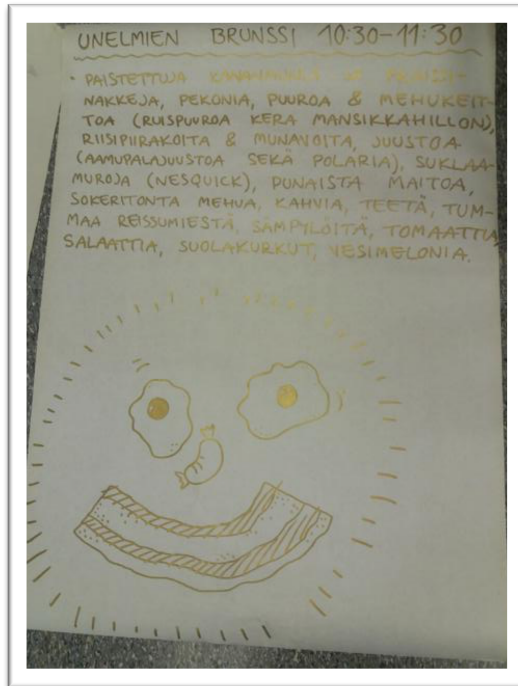 UNELMIEN BRUNSSI 10:30-11:30
• PAISTETTUJA KANANMUNIA JA PRINSSI-
NAKKEJA, PEKONIA, PUUROA & MEHUKEIT-
TOA (RUISPUUROA KERA MANSIKKAHILLON),
RIISIPIIRAKOITA & MUNAVOITA, JUUSTOA
(AAMUPALAJUUSTOA SEKÄ POLARIA), SUKLAA-
MUROJA (NESQUICK), PUNAISTA MAITOA,
SOKERITONTA MEHUA, KAHVIA, TEETÄ, TUM-
MAA REISSUMIESTÄ, SÄMPYLÖITÄ, TOMAATTIA,
SALAATTIA, SUOLAKURKUT, VESIMELONIA.